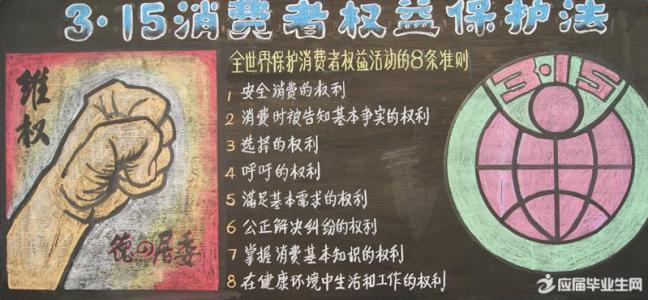 3·15消费者权益保护法
维权
德四居委
全世界保护消费者权益活动的8条准则
1 安全消费的权利
2 消费时被告知基本事实的权利
3 选择的权利
4 呼吁的权利
5 满足基本需求的权利
6 公正解决纠纷的权利
7 掌握消费基本知识的权利
8 在健康环境中生活和工作的权利
3·15
应届毕业生网